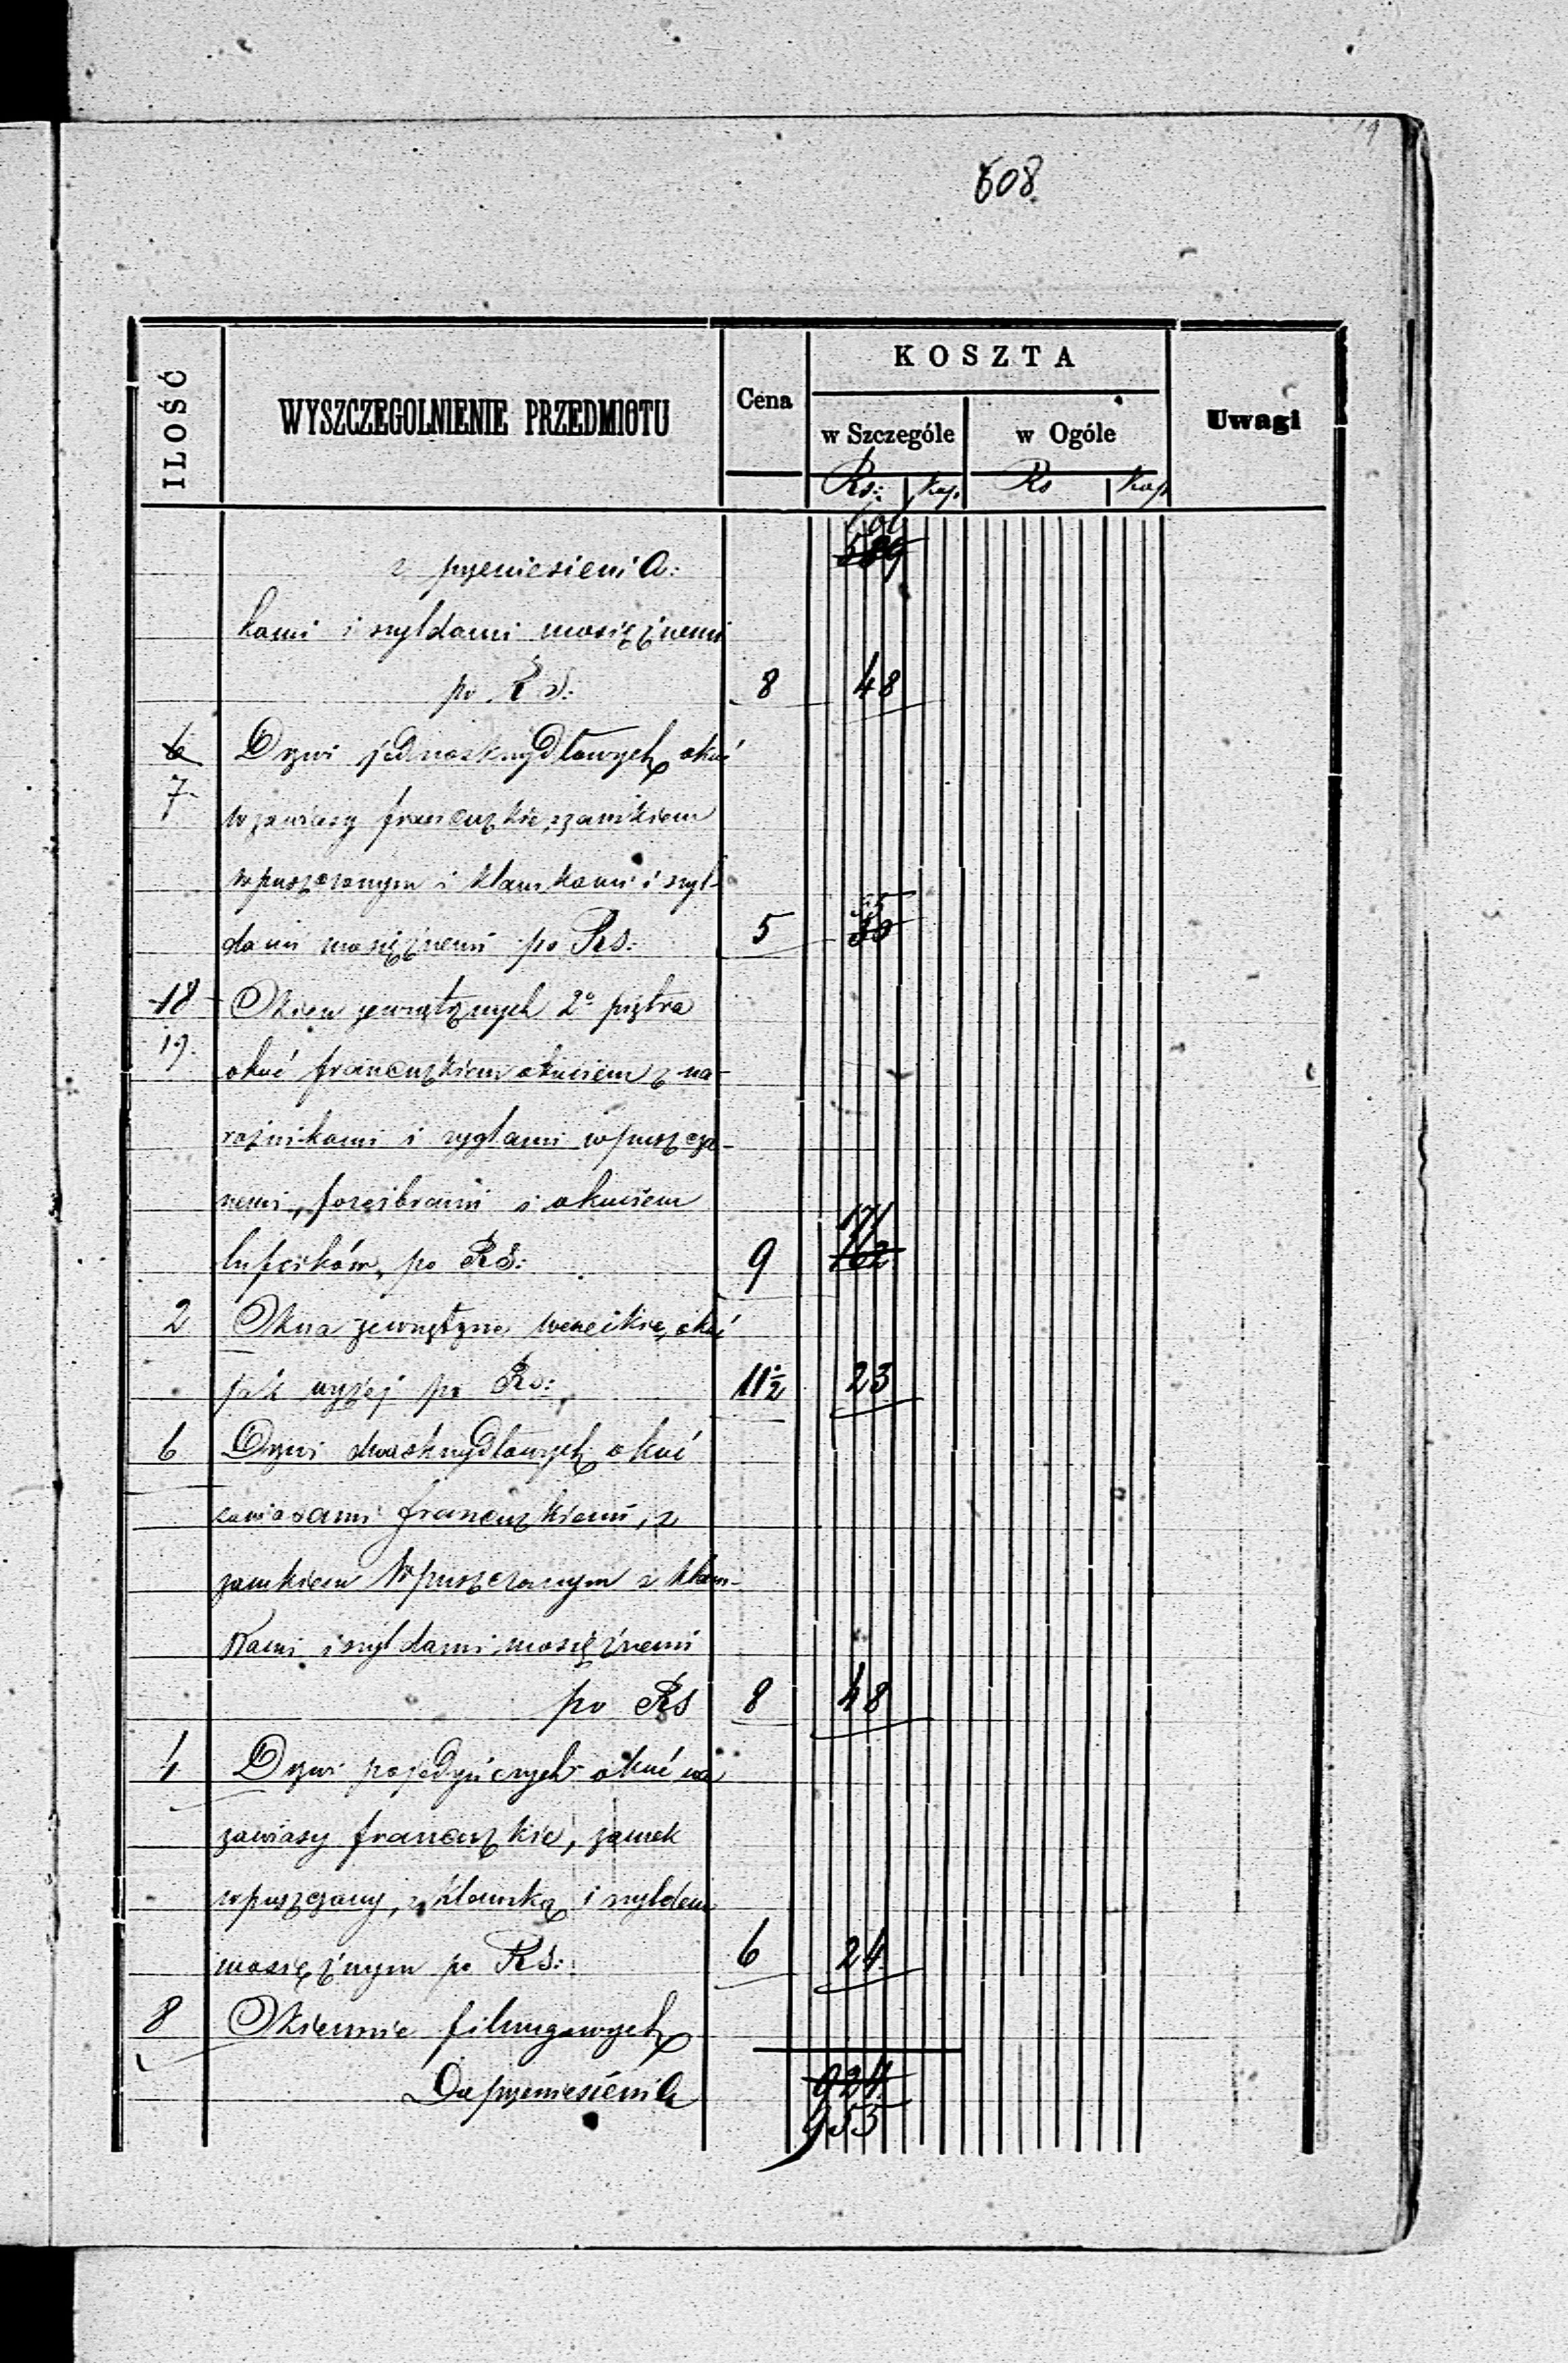 608.
ILOŚĆ
WYSZCZEGOLNIENIE PRZEDMIOTU
Cena
KOSZTA
w Szczególe
w Ogóle
Uwagi
Rs: Kop. Rs Kop.
z przeniesienia: 589
kami i szyldami mosiężnemi
po Rs: 8 48
6 Drzwi jednoskrzydłowych okuć
7 w zawiasy francuzkie, z zamkiem
wpuszczanym i klamkami i szyl-
dami mosiężnemi po Rs: 5 35 30
18 Okien zewnętrznych 2º piętra
19. okuć francuzkiem okuciem z na-
rożnikami i ryglami wpuszcza-
nemi, i okuciem
lufcików, po RS: 9 171 162
2 Okna zewnętrzne weneckie, okuć
jak wyżej po Rs: 11½ 23
6 Drzwi dwuskrzydłowych okuć
zawiasami francuzkiemi, z
zamkiem wpuszczanym z klam-
kami i szyldami mosiężnemi
po RS 8 48
4 Drzwi pojedyńczych okuć na
zawiasy francuzkie, zamek
wpuszczany, z klamką i szyldem
mosiężnym po RS: 6 24.
8 Okiennic filungowych
Do przeniesienia 924.
953